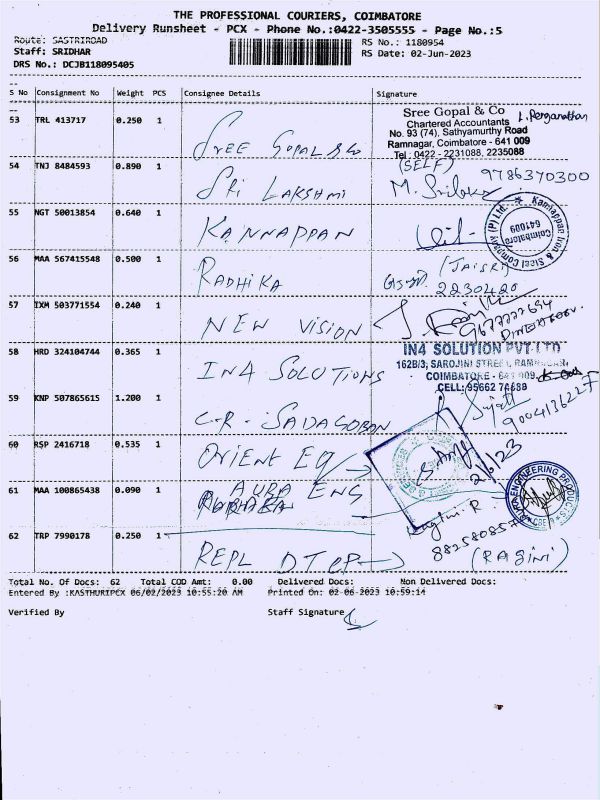 THE PROFESSIONAL COURIERS, COIMBATORE
Delivery Runsheet - PCX - Phone No.:0422-3505555 - Page No.:5
Route: SASTRIROAD
RS No.: 1180954
Staff: SRIDHAR
RS Date: 02-Jun-2023
DRS No.: DCJB118095405
S No Consignment No Weight PCS Consignee Details Signature
53 TRL 413717 0.250 1 SREE GOPAL & Co
Sree Gopal & Co
Chartered Accountants
No. 93 (74), Sathyamurthy Road
Ramnagar, Coimbatore - 641 009
Tel : 0422 - 2231088, 2235088
54 TNJ 8484593 0.890 1 SRI LAKSHMI
(SELF)
9786370300
55 NGT 50013854 0.640 1 KANNAPPAN
Kannappan Iron & Steel Company (P) Ltd.
Coimbatore
641009
56 MAA 567415548 0.500 1 RADHIKA
(JAISRI)
2230420
57 IXM 503771554 0.240 1 NEW VISION
9677777694
58 HRD 324104744 0.365 1 IN4 SOLUTIONS
IN4 SOLUTION PVT LTD
162B/3, SAROJINI STREET, RAMNAGAR,
COIMBATORE - 641 009.
CELL: 95662 74688
59 KNP 507865615 1.200 1 C.R. SADAGOBAN
9004136227
60 RSP 2416718 0.535 1 ORIENT EQ
2/6/23
61 MAA 100865438 0.090 1 AURA ENG
AURA ENGINEERING PRODUCTS
CBE
Ragini R
882580857
62 TRP 7990178 0.250 1 REPL DT CP
(RAGINI)
Total No. Of Docs: 62 Total COD Amt: 0.00 Delivered Docs: Non Delivered Docs:
Entered By :KASTHURIPCX 06/02/2023 10:55:20 AM Printed On: 02-06-2023 10:59:14
Verified By Staff Signature